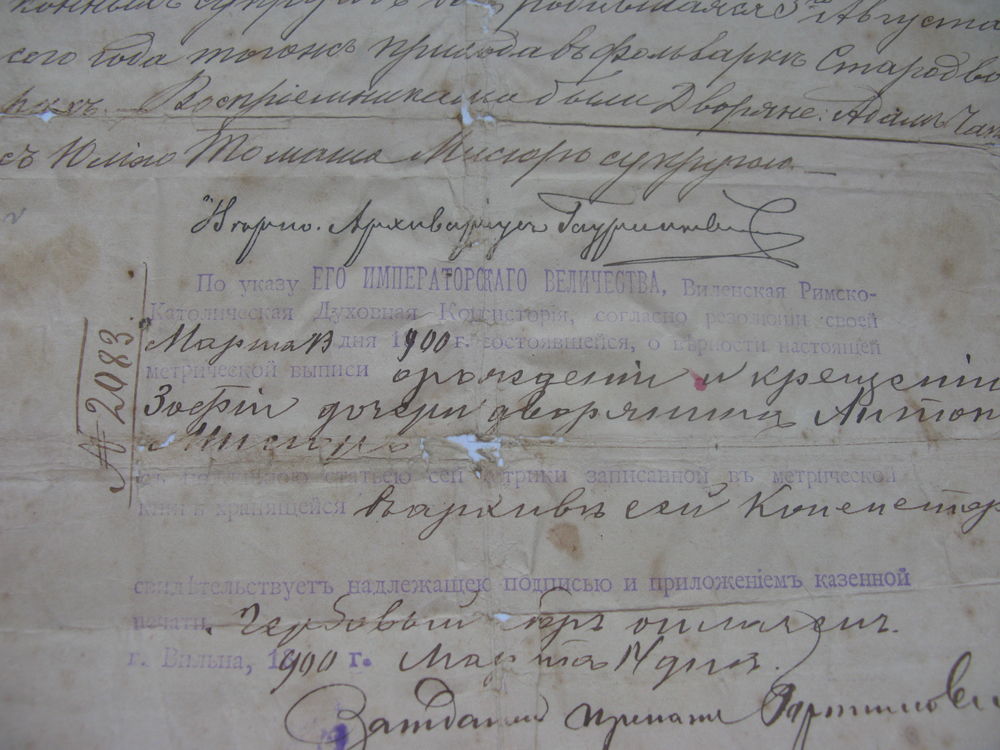 родившаяся 5го Августа
сего года тогожъ прихода въ фольваркѣ Стародво
рахъ. Воспріемниками были Дворяне: Адамъ
съ Юліею Томаша Мисюръ супругою
Архиваріусъ
По указу ЕГО ИМПЕРАТОРСКАГО ВЕЛИЧЕСТВА, Виленская Римско-
Католическая Духовная Консисторія, согласно резолюціи своей
Марта 13 дня 1900 г. состоявшейся, о вѣрности настоящей
метрической выписи о рожденіи и крещеніи
Зофіи дочери дворянина Антон
Мисюръ
съ подлинною статьею сей метрики записанной въ метрической
книгѣ хранящейся въ архивѣ сей Консистор
свидѣтельствуетъ надлежащею подписью и приложеніемъ казенной
печати. Гербовый сборъ оплаченъ.
г. Вильна, 1900 г. Марта 14 дня.
Засѣдатель Прелатъ
№ 2083.